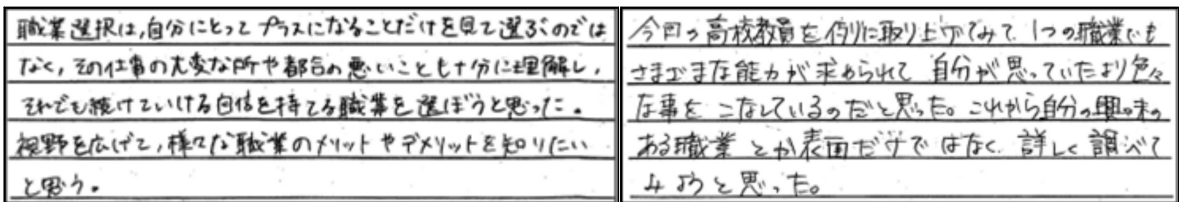 職業選択は,自分にとってプラスになることだけを見て選ぶのでは
なく,その仕事の大変な所や都合の悪いことも十分に理解し,
それでも続けていける自信を持てる職業を選ぼうと思った。
視野を広げて,様々な職業のメリットやデメリットを知りたい
と思う。
今回の高校教員を例に取り上げてみて、1つの職業でも
さまざまな能力が求められて 自分が思っていたより色々
な事を こなしているのだと思った。これから自分の興味の
ある職業 とか表面だけで はなく、詳しく 調べて
みようと思った。